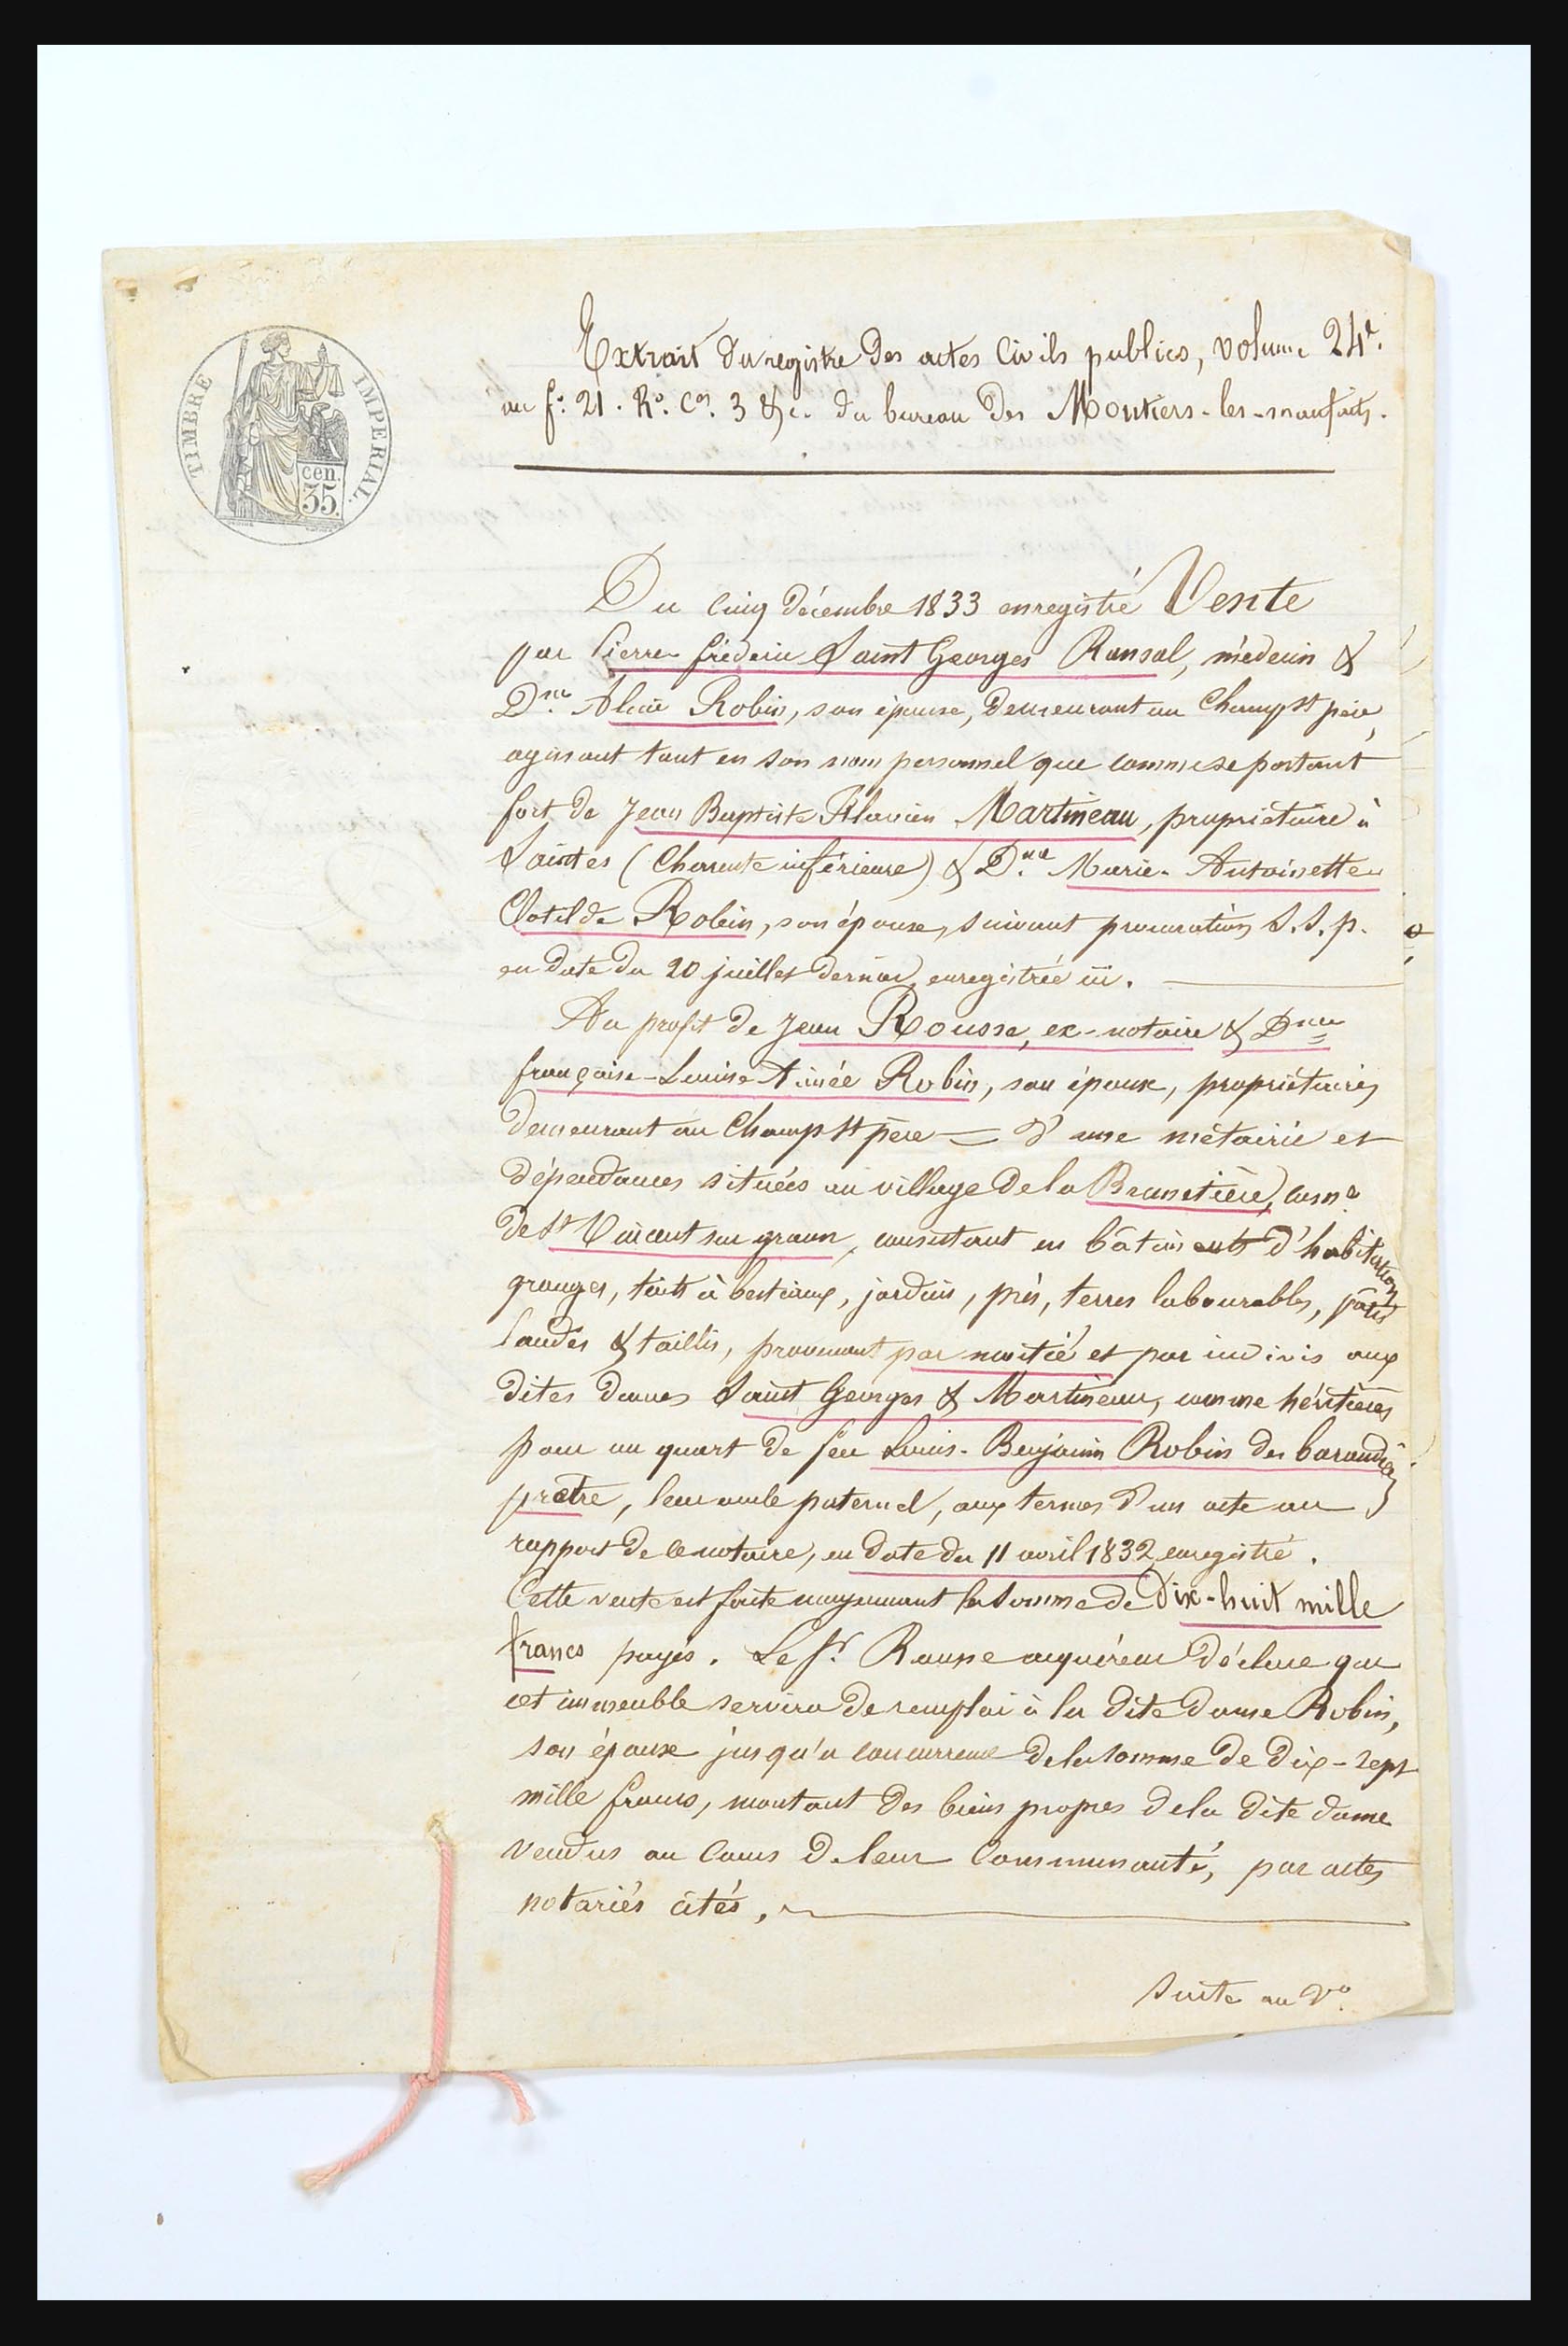 TIMBRE IMPERIAL.
cen.
35.
Extrait du registre des actes civils publics, volume 24e.
au fo. 21. Ro. Ces. 3 &c. du bureau des Moutiers-les-maufaits.
Du cinq décembre 1833 enregistré Vente
par Pierre frédéric Saint Georges Ransal, médecin &
Dme. Alicie Robin, son épouse, demeurant au Champ St père,
agissant tant en son nom personnel que comme se portant
fort de Jean Baptiste Flavien Martineau, propriétaire à
Saintes (Charente inférieure) & Dme. Marie-Antoinette
Clotilde Robin, son épouse, suivant procuration S.S.p.
en date du 20 juillet dernier, enregistrée ici.
Au profit de Jean Rousse, ex-notaire & Dme
françoise-Louise Aimée Robin, son épouse, propriétaires
demeurant au Champ St père = d'une métairie et
dépendances situées au village de la Brunetière, comne
de St Vincent sur graon, consistant en bâtiments d'habitation
granges, toits à bestiaux, jardins, prés, terres labourables, pâtis
landes & taillis, provenant par moitié et par indivis aux
dites dames Saint Georges & Martineau, comme héritières
pour un quart de feu Louis-Benjamin Robin des barandières
prêtre, leur oncle paternel, aux termes d'un acte au
rapport de ce notaire, en date du 11 avril 1832, enregistré.
Cette vente est faite moyennant la somme de Dix-huit mille
francs payés. Le Sr. Rousse acquéreur déclare que
cet immeuble servira de remploi à la dite dame Robin,
son épouse jusqu'à concurrence de la somme de dix-sept
mille francs, montant des biens propres de la dite dame
vendus au cours de leur communauté, par actes
notariés cités.
Suite au Vo.